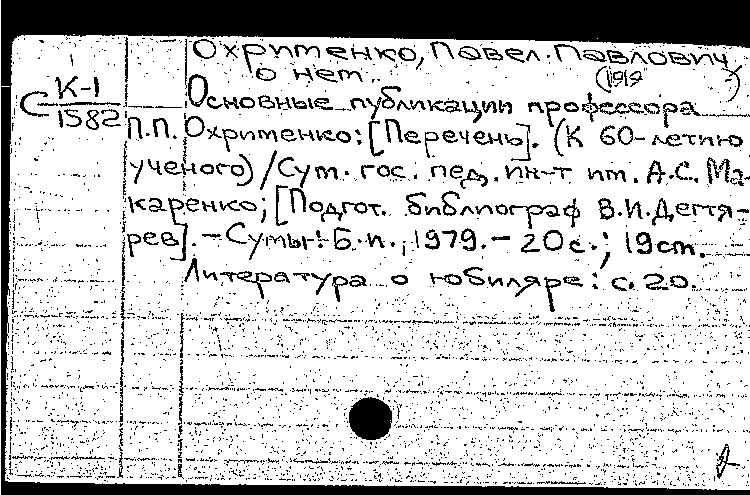 Охрименко, Павел Павлович
о нем (1919 )
С К-1
1582
Основные публикации профессора
П.П. Охрименко: [Перечень]. (К 60-летию
ученого) / Сум. гос. пед. ин-т им. А.С. Ма-
каренко; [Подгот. библиограф В.И. Дегтя-
рев]. – Сумы: Б.и., 1979. – 20 с.; 19 см.
Литература о юбиляре: с. 20.